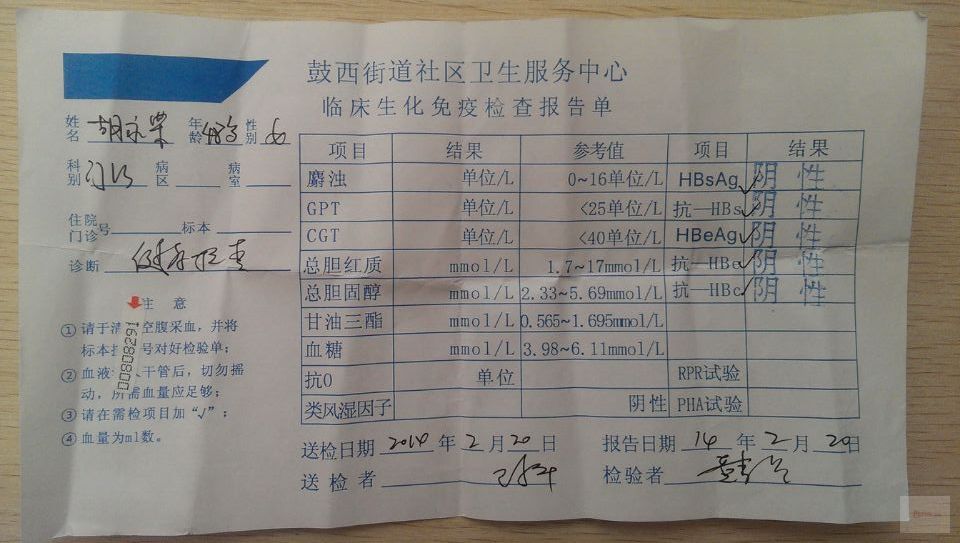 鼓西街道社区卫生服务中心
临床生化免疫检查报告单
姓名 胡永荣 年龄 性别 女
科别 病区 病室
住院门诊号 标本
诊断 健康检查
注 意
① 请于清 空腹采血，并将
标本 号对好检验单；
② 血液 干管后，切勿摇
动，所需血量应足够；
③ 请在需检项目加“√”；
④ 血量为ml数。
00808291
项目 结果 参考值 项目 结果
麝浊 单位/L 0~16单位/L HBsAg √ 阴性
GPT 单位/L <25单位/L 抗—HBs √ 阴性
CGT 单位/L <40单位/L HBeAg √ 阴性
总胆红质 mmol/L 1.7~17mmol/L 抗—HBe √ 阴性
总胆固醇 mmol/L 2.33~5.69mmol/L 抗—HBc √ 阴性
甘油三酯 0.565~1.695mmol/L
血糖 mmol/L 3.98~6.11mmol/L
抗O 单位 RPR试验
类风湿因子 阴性 PHA试验
送检日期 2014 年 2 月 20 日 报告日期 14 年 2 月 20 日
送检者 检验者